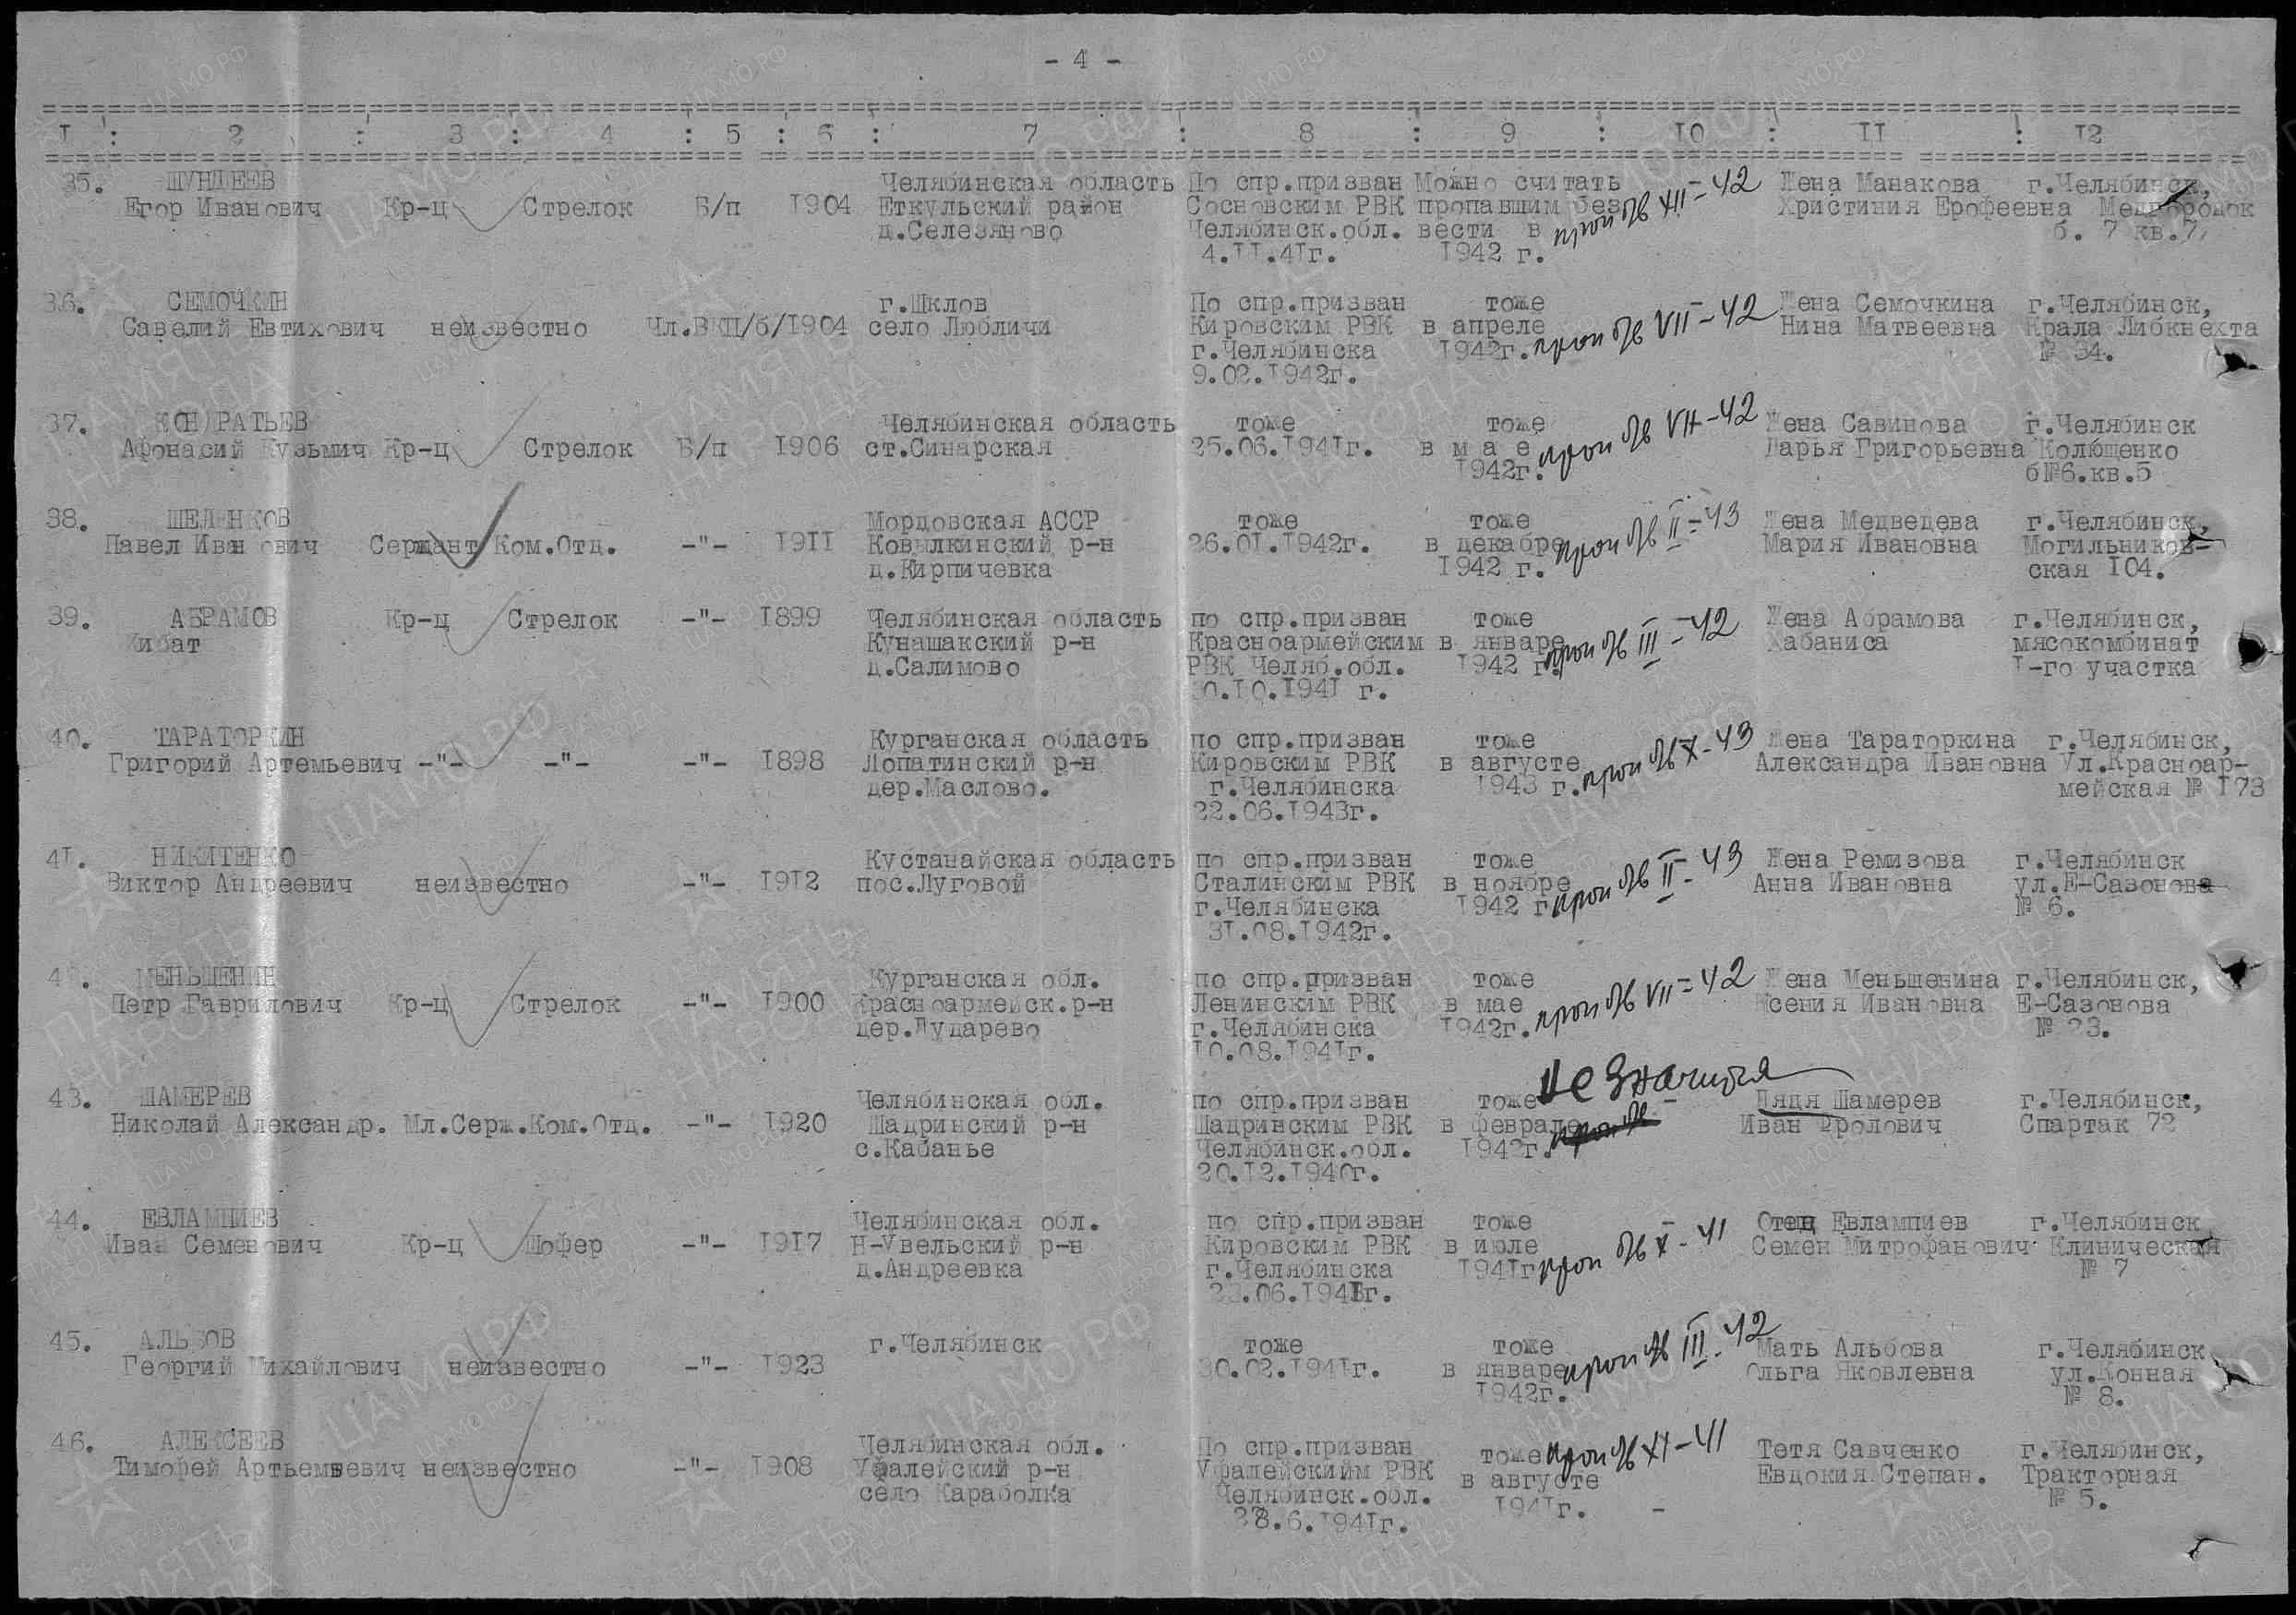 - 4 -
I : 2 : 3 : 4 : 5 : 6 : 7 : 8 : 9 : 10 : II : I2
35. ШУНДЕЕВ Челябинская область По спр.призван Можно считать Жена Манакова г.Челябинск,
Егор Иванович Кр-ц Стрелок Б/п I904 Еткульский район Сосновским РВК пропавшим без проп XII-42 Христиния Ерофеевна Медгородок
д.Селезяново Челябинск.обл. вести в б. 7 кв.7
4.II.4Iг. I942 г.
36. СЕМОЧКИН г.Шклов По спр.призван тоже Жена Семочкина г.Челябинск,
Савелий Евтихович неизвестно Чл.ВКП/б/I904 село Любличи Кировским РВК в апреле проп VII-42 Нина Матвеевна Крала Либкнехта
г.Челябинска I942г. № 34.
9.02.I942г.
37. КОНДРАТЬЕВ Челябинская область тоже тоже Жена Савинова г.Челябинск
Афонасий Кузьмич Кр-ц Стрелок Б/п I906 ст.Синарская 25.06.I94Iг. в м а е проп VII-42 Дарья Григорьевна Колющенко
I942г. б№6.кв.5
38. ШЕЛЕНКОВ Мордовская АССР тоже тоже Жена Медведева г.Челябинск,
Павел Иванович Сержант Ком.Отд. -"- I9II Ковылкинский р-н 26.0I.I942г. в декабре проп II-43 Мария Ивановна Могильников-
д.Кирпичевка I942 г. ская I04.
39. АБРАМОВ Кр-ц Стрелок -"- I899 Челябинская область по спр.призван тоже Жена Абрамова г.Челябинск,
Хибат Кунашакский р-н Красноармейским в январе проп III-42 Хабаниса мясокомбинат
д.Салимово РВК Челяб.обл. I942 г. I-го участка
30.I0.I94I г.
40. ТАРАТОРКИН Курганская область по спр.призван тоже Жена Тараторкина г.Челябинск,
Григорий Артемьевич -"- -"- -"- I898 Лопатинский р-н Кировским РВК в августе проп X-43 Александра Ивановна Ул.Красноар-
дер.Маслово. г.Челябинска I943 г. мейская № I73
22.06.I943г.
4I. НИКИТЕНКО Кустанайская область по спр.призван тоже Жена Ремизова г.Челябинск
Виктор Андреевич неизвестно -"- I9I2 пос.Луговой Сталинским РВК в ноябре проп II-43 Анна Ивановна ул.Е-Сазонова
г.Челябинска I942 г. № 6.
3I.08.I942г.
МЕНЬШЕНИН Курганская обл. по спр.призван тоже Жена Меньшенина г.Челябинск,
Петр Гаврилович Кр-ц Стрелок -"- I900 Красноармейск.р-н Ленинским РВК в мае проп VII-42 Ксения Ивановна Е-Сазонова
дер.Дударево г.Челябинска I942г. № 23.
I0.08.I94Iг.
не значится
43. ШАМЕРЕВ Челябинская обл. по спр.призван тоже Дядя Шамерев г.Челябинск,
Николай Александр. Мл.Серж.Ком.Отд. -"- I920 Шадринский р-н Шадринским РВК в феврале Иван Фролович Спартак 72
с.Кабанье Челябинск.обл. I942г.
20.I2.I940г.
44. ЕВЛАМПИЕВ Челябинская обл. по спр.призван тоже Отец Евлампиев г.Челябинск
Иван Семенович Кр-ц Шофер -"- I9I7 Н-Увельский р-н Кировским РВК в июле проп X-41 Семен Митрофанович Клиническая
д.Андреевка г.Челябинска I94Iг № 7
45. АЛЬБОВ г.Челябинск тоже тоже Мать Альбова г.Челябинск
Георгий Михайлович неизвестно -"- I923 30.02.I94Iг. в январе проп III-42 Ольга Яковлевна ул.Конная
I942г. № 8.
46. АЛЕКСЕЕВ Челябинская обл. По спр.призван тоже проп XI-41 Тетя Савченко г.Челябинск,
Тимофей неизвестно -"- I908 Уфалейский р-н Уфалейскийм РВК в августе Евдокия.Степан. Тракторная
село Караболка Челябинск.обл. I94Iг. - № 5.
28.6.I94Iг.